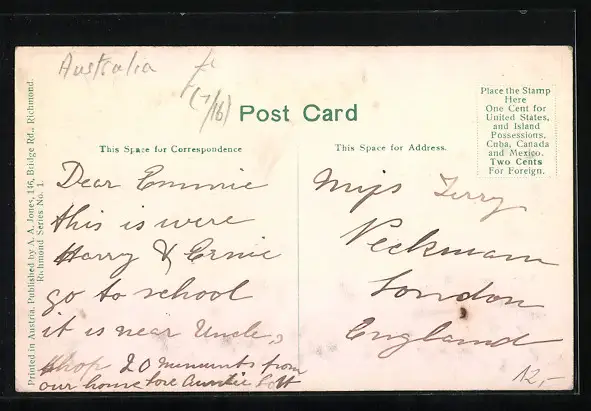 Australia
(7/16)
Post Card
Place the Stamp
Here
One Cent for
United States,
and Island
Possessions,
Cuba, Canada
and Mexico.
Two Cents
For Foreign.
Printed in Austria. Published by A. A. Jones, 146, Bridge Rd., Richmond.
Richmond Series No. 1.
This Space for Correspondence
Dear Emmie
this is were
Harry & Ernie
go to school
it is near Uncle,s
shop 20 minunts from
our house love Auntie
This Space for Address.
Miss Terry
Peckmam
London
England
12,-